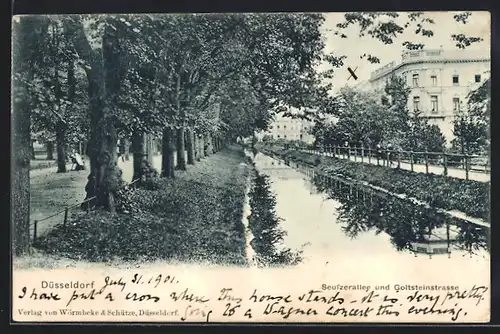 Düsseldorf July 31. 1901. Seufzerallee und Goltsteinstrasse
I have put a cross where this house stands - it is very pretty.
Verlag von Wörmbcke & Schütze, Düsseldorf. Going to a Wagner Concert this evening.